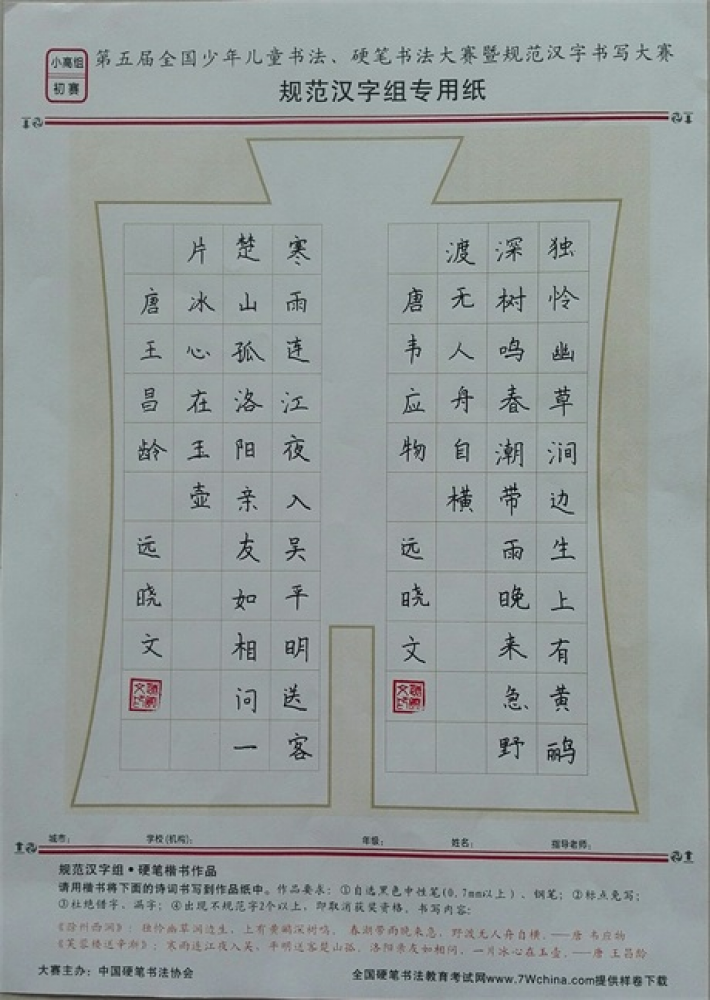 小高组
初赛
第五届全国少年儿童书法、硬笔书法大赛暨规范汉字书写大赛
规范汉字组专用纸
独怜幽草涧边生上有黄鹂
深树鸣春潮带雨晚来急野
渡无人舟自横
唐韦应物 远晓文
寒雨连江夜入吴平明送客
楚山孤洛阳亲友如相问一
片冰心在玉壶
唐王昌龄 远晓文
城市： 学校(机构)： 年级： 姓名： 指导老师：
规范汉字组•硬笔楷书作品
请用楷书将下面的诗词书写到作品纸中。作品要求：①自选黑色中性笔(0.7mm以上)、钢笔；②标点免写；
③杜绝错字、漏字；④出现不规范字2个以上，即取消获奖资格。书写内容：
《滁州西涧》：独怜幽草涧边生，上有黄鹂深树鸣。 春潮带雨晚来急，野渡无人舟自横。——唐 韦应物
《芙蓉楼送辛渐》：寒雨连江夜入吴，平明送客楚山孤。洛阳亲友如相问，一片冰心在玉壶。——唐 王昌龄
大赛主办：中国硬笔书法协会 全国硬笔书法教育考试网www.7Wchina.com提供样卷下载